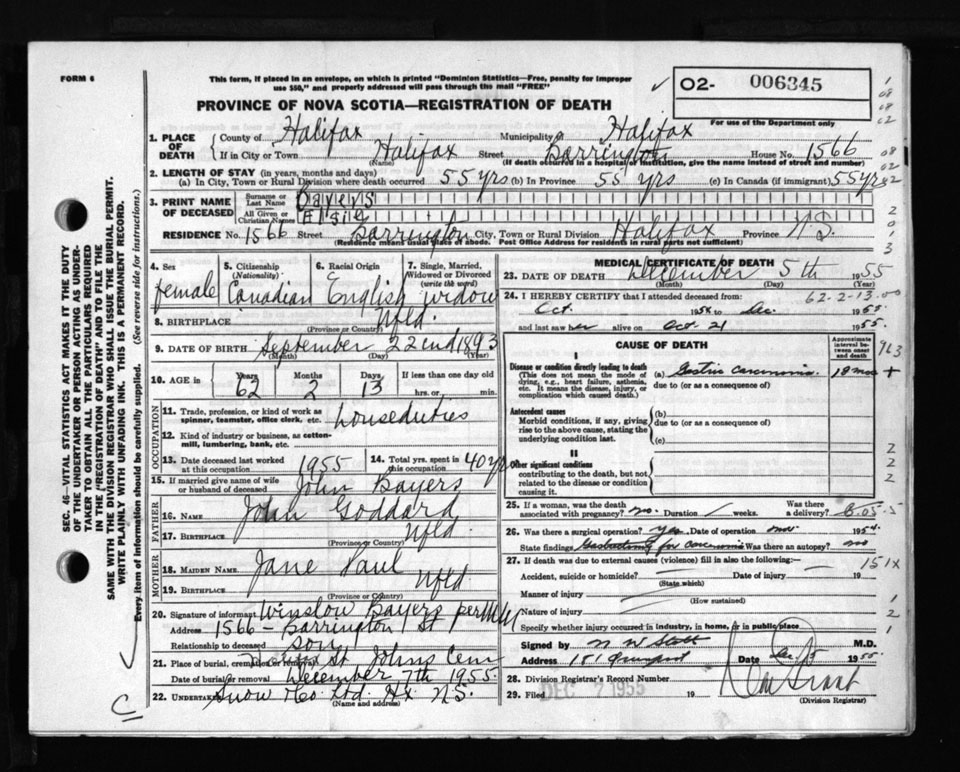 FORM 6
This form, if placed in an envelope, on which is printed "Dominion Statistics—Free, penalty for improper
use $50," and properly addressed will pass through the mail "FREE"
O2- 006345
For use of the Department only
PROVINCE OF NOVA SCOTIA—REGISTRATION OF DEATH
1. PLACE OF DEATH
County of Halifax Municipality of Halifax
If in City or Town Halifax Street Barrington House No. 1566
(Name) (If death occurred in a hospital or institution, give the name instead of street and number)
2. LENGTH OF STAY (in years, months and days)
(a) In City, Town or Rural Division where death occurred 55 yrs (b) In Province 55 yrs (c) In Canada (if immigrant) 55 yrs
3. PRINT NAME OF DECEASED
Surname or Last Name Bayers
All Given or Christian Names Elsie
RESIDENCE No. 1566 Street Barrington City, Town or Rural Division Halifax Province N.S.
(Residence means usual place of abode. Post Office Address for residents in rural parts not sufficient)
4. Sex female
5. Citizenship (Nationality) Canadian
6. Racial Origin English
7. Single, Married, Widowed or Divorced (write the word) widow
8. BIRTHPLACE Nfld.
(Province or Country)
9. DATE OF BIRTH September 22nd 1893
(Month) (Day) (Year)
10. AGE in Years 62 Months 2 Days 13 If less than one day old
hrs. or min.
OCCUPATION
11. Trade, profession, or kind of work as
spinner, teamster, office clerk, etc. houseduties
12. Kind of industry or business, as cotton-
mill, lumbering, bank, etc.
13. Date deceased last worked
at this occupation 1955
14. Total yrs. spent in
this occupation 40 yrs
15. If married give name of wife
or husband of deceased John Bayers
FATHER
16. NAME John Goddard
17. BIRTHPLACE Nfld.
(Province or Country)
MOTHER
18. MAIDEN NAME Jane Paul
19. BIRTHPLACE Nfld
(Province or Country)
20. Signature of informant Winslow Bayers per
Address 1566 - Barrington St
Relationship to deceased son
21. Place of burial, cremation or removal St Johns Cem
Date of burial or removal December 7th 1955.
22. Undertaker Snow & Co Ltd. Hx N.S.
(Name and address)
MEDICAL CERTIFICATE OF DEATH
23. DATE OF DEATH December 5th 1955
(Month) (Day)
24. I HEREBY CERTIFY that I attended deceased from 62-2-13
Oct. 1954 to Dec. 1955
and last saw her alive on Oct. 21 1955.
CAUSE OF DEATH
Approximate interval between onset and death
I
Disease or condition directly leading to death
(This does not mean the mode of
dying, e.g., heart failure, asthenia,
etc. It means the disease, injury, or
complication which caused death.)
(a) Gastric carcinoma 18 mos +
due to (or as a consequence of)
Antecedent causes
Morbid conditions, if any, giving
rise to the above cause, stating the
underlying condition last.
(b)
due to (or as a consequence of)
(c)
II
Other significant conditions
contributing to the death, but not
related to the disease or condition
causing it.
25. If a woman, was the death
associated with pregnancy? no. Duration weeks. Was there
a delivery?
26. Was there a surgical operation? yes Date of operation Nov. 1954.
State findings Gastrectomy for carcinoma Was there an autopsy? no
27. If death was due to external causes (violence) fill in also the following:— 151X
Accident, suicide or homicide? Date of injury 19
(State which)
Manner of injury
(How sustained)
Nature of injury
Specify whether injury occurred in industry, in home, or in public place
Signed by M.D.
Address 151 Date Dec. 5 1955.
28. Division Registrar's Record Number
29. Filed DEC 7 1955 19
(Division Registrar)
SEC. 46—VITAL STATISTICS ACT MAKES IT THE DUTY
OF THE UNDERTAKER OR PERSON ACTING AS UNDER-
TAKER TO OBTAIN ALL THE PARTICULARS REQUIRED
IN THE "REGISTRATION OF DEATH" AND TO FILE THE
SAME WITH THE DIVISION REGISTRAR WHO SHALL ISSUE THE BURIAL PERMIT.
WRITE PLAINLY WITH UNFADING INK. THIS IS A PERMANENT RECORD.
Every item of information should be carefully supplied. (See reverse side for instructions.)